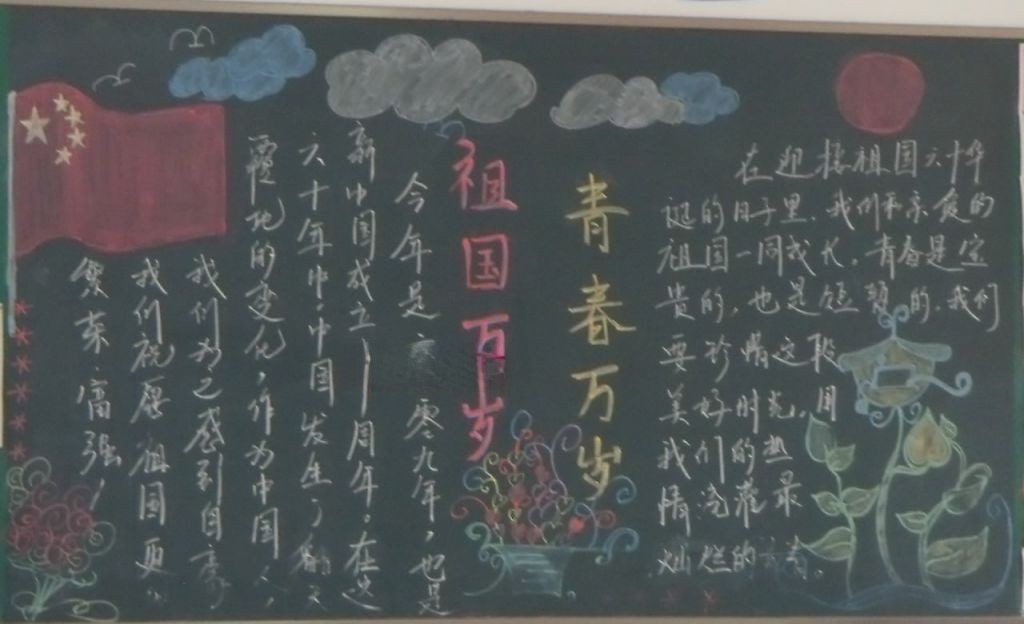 祖国万岁
青春万岁
今年是二零零九年，也是
新中国成立六十周年。在这
六十年中，中国发生了翻天
覆地的变化，作为中国人，
我们为之感到自豪，
我们祝愿祖国更加
繁荣富强！
在迎接祖国六十华
诞的日子里，我们和亲爱的
祖国一同成长。青春是宝
贵的，也是短暂的，我们
要珍惜这段
美好时光，用
我们的热
情浇灌最
灿烂的青春。